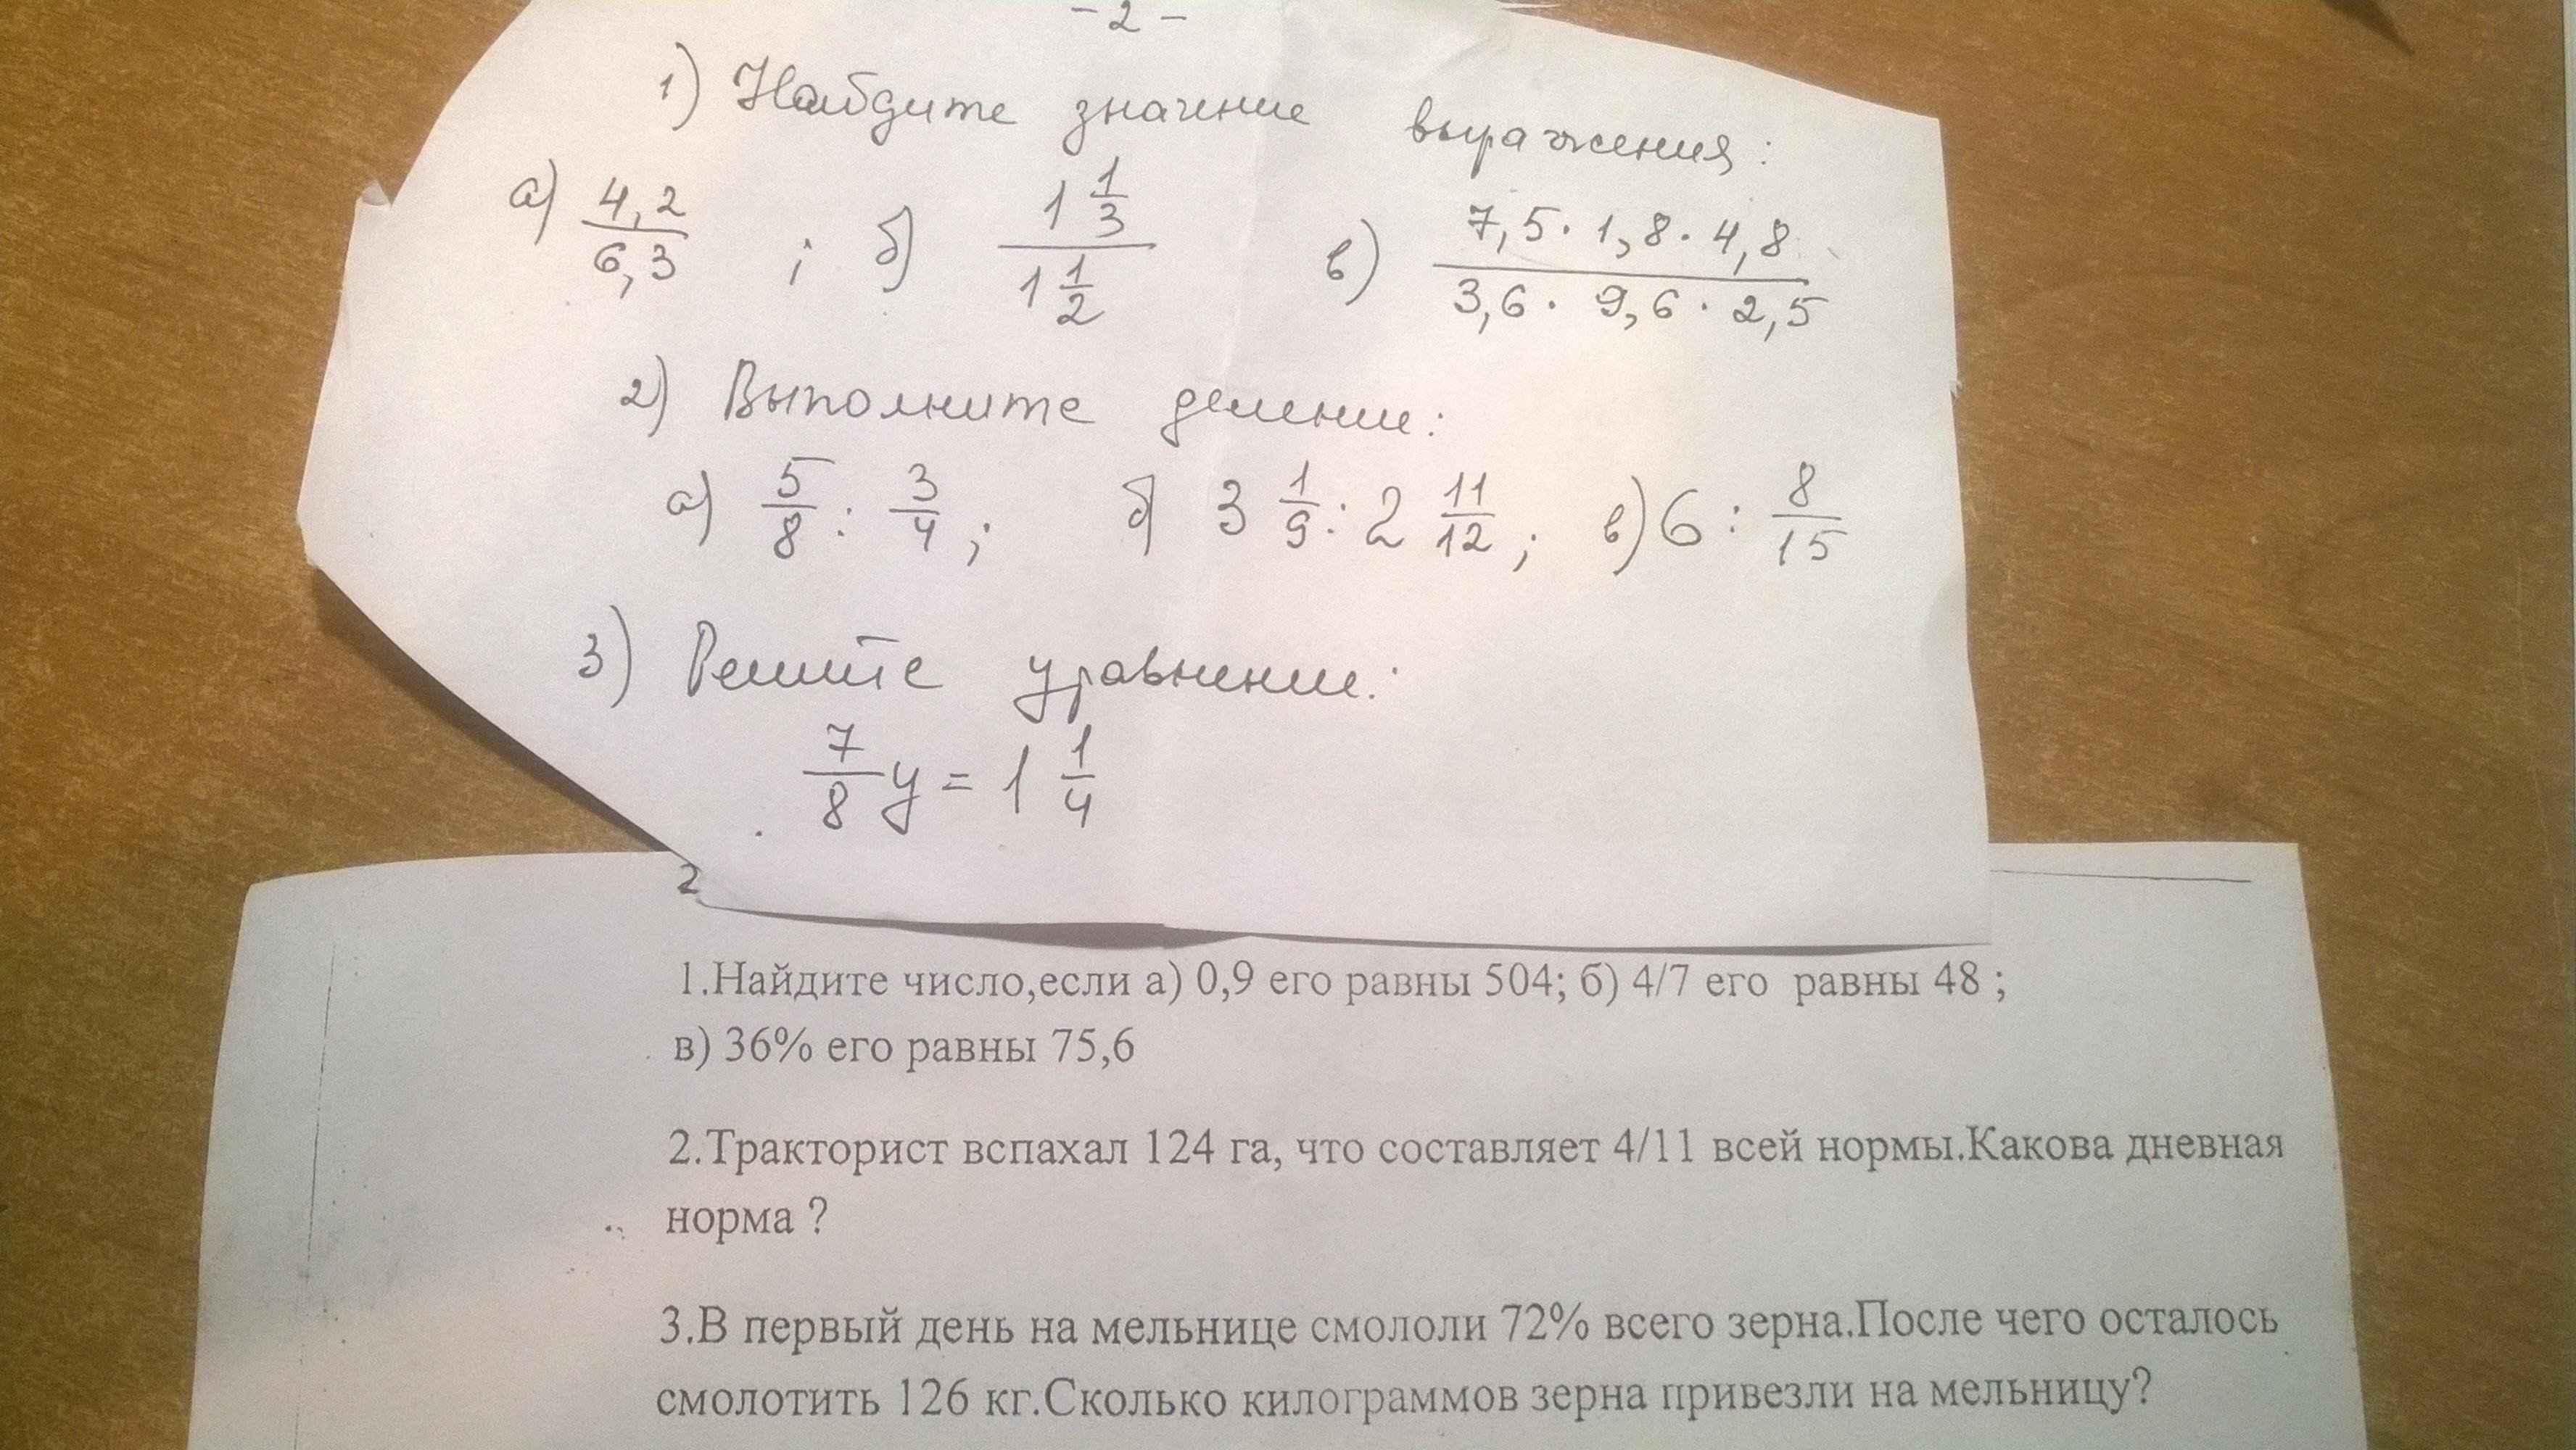 - 2 -
1) Найдите значение выражения:
а) 4,2/6,3 ; б) 1 1/3 / 1 1/2 в) 7,5 · 1,8 · 4,8 / 3,6 · 9,6 · 2,5
2) Выполните деление:
а) 5/8 : 3/4 ; б) 3 1/9 : 2 11/12 ; в) 6 : 8/15
3) Решите уравнение:
7/8 y = 1 1/4
2
1.Найдите число,если а) 0,9 его равны 504; б) 4/7 его равны 48 ;
в) 36% его равны 75,6
2.Тракторист вспахал 124 га, что составляет 4/11 всей нормы.Какова дневная
норма ?
3.В первый день на мельнице смололи 72% всего зерна.После чего осталось
смолотить 126 кг.Сколько килограммов зерна привезли на мельницу?